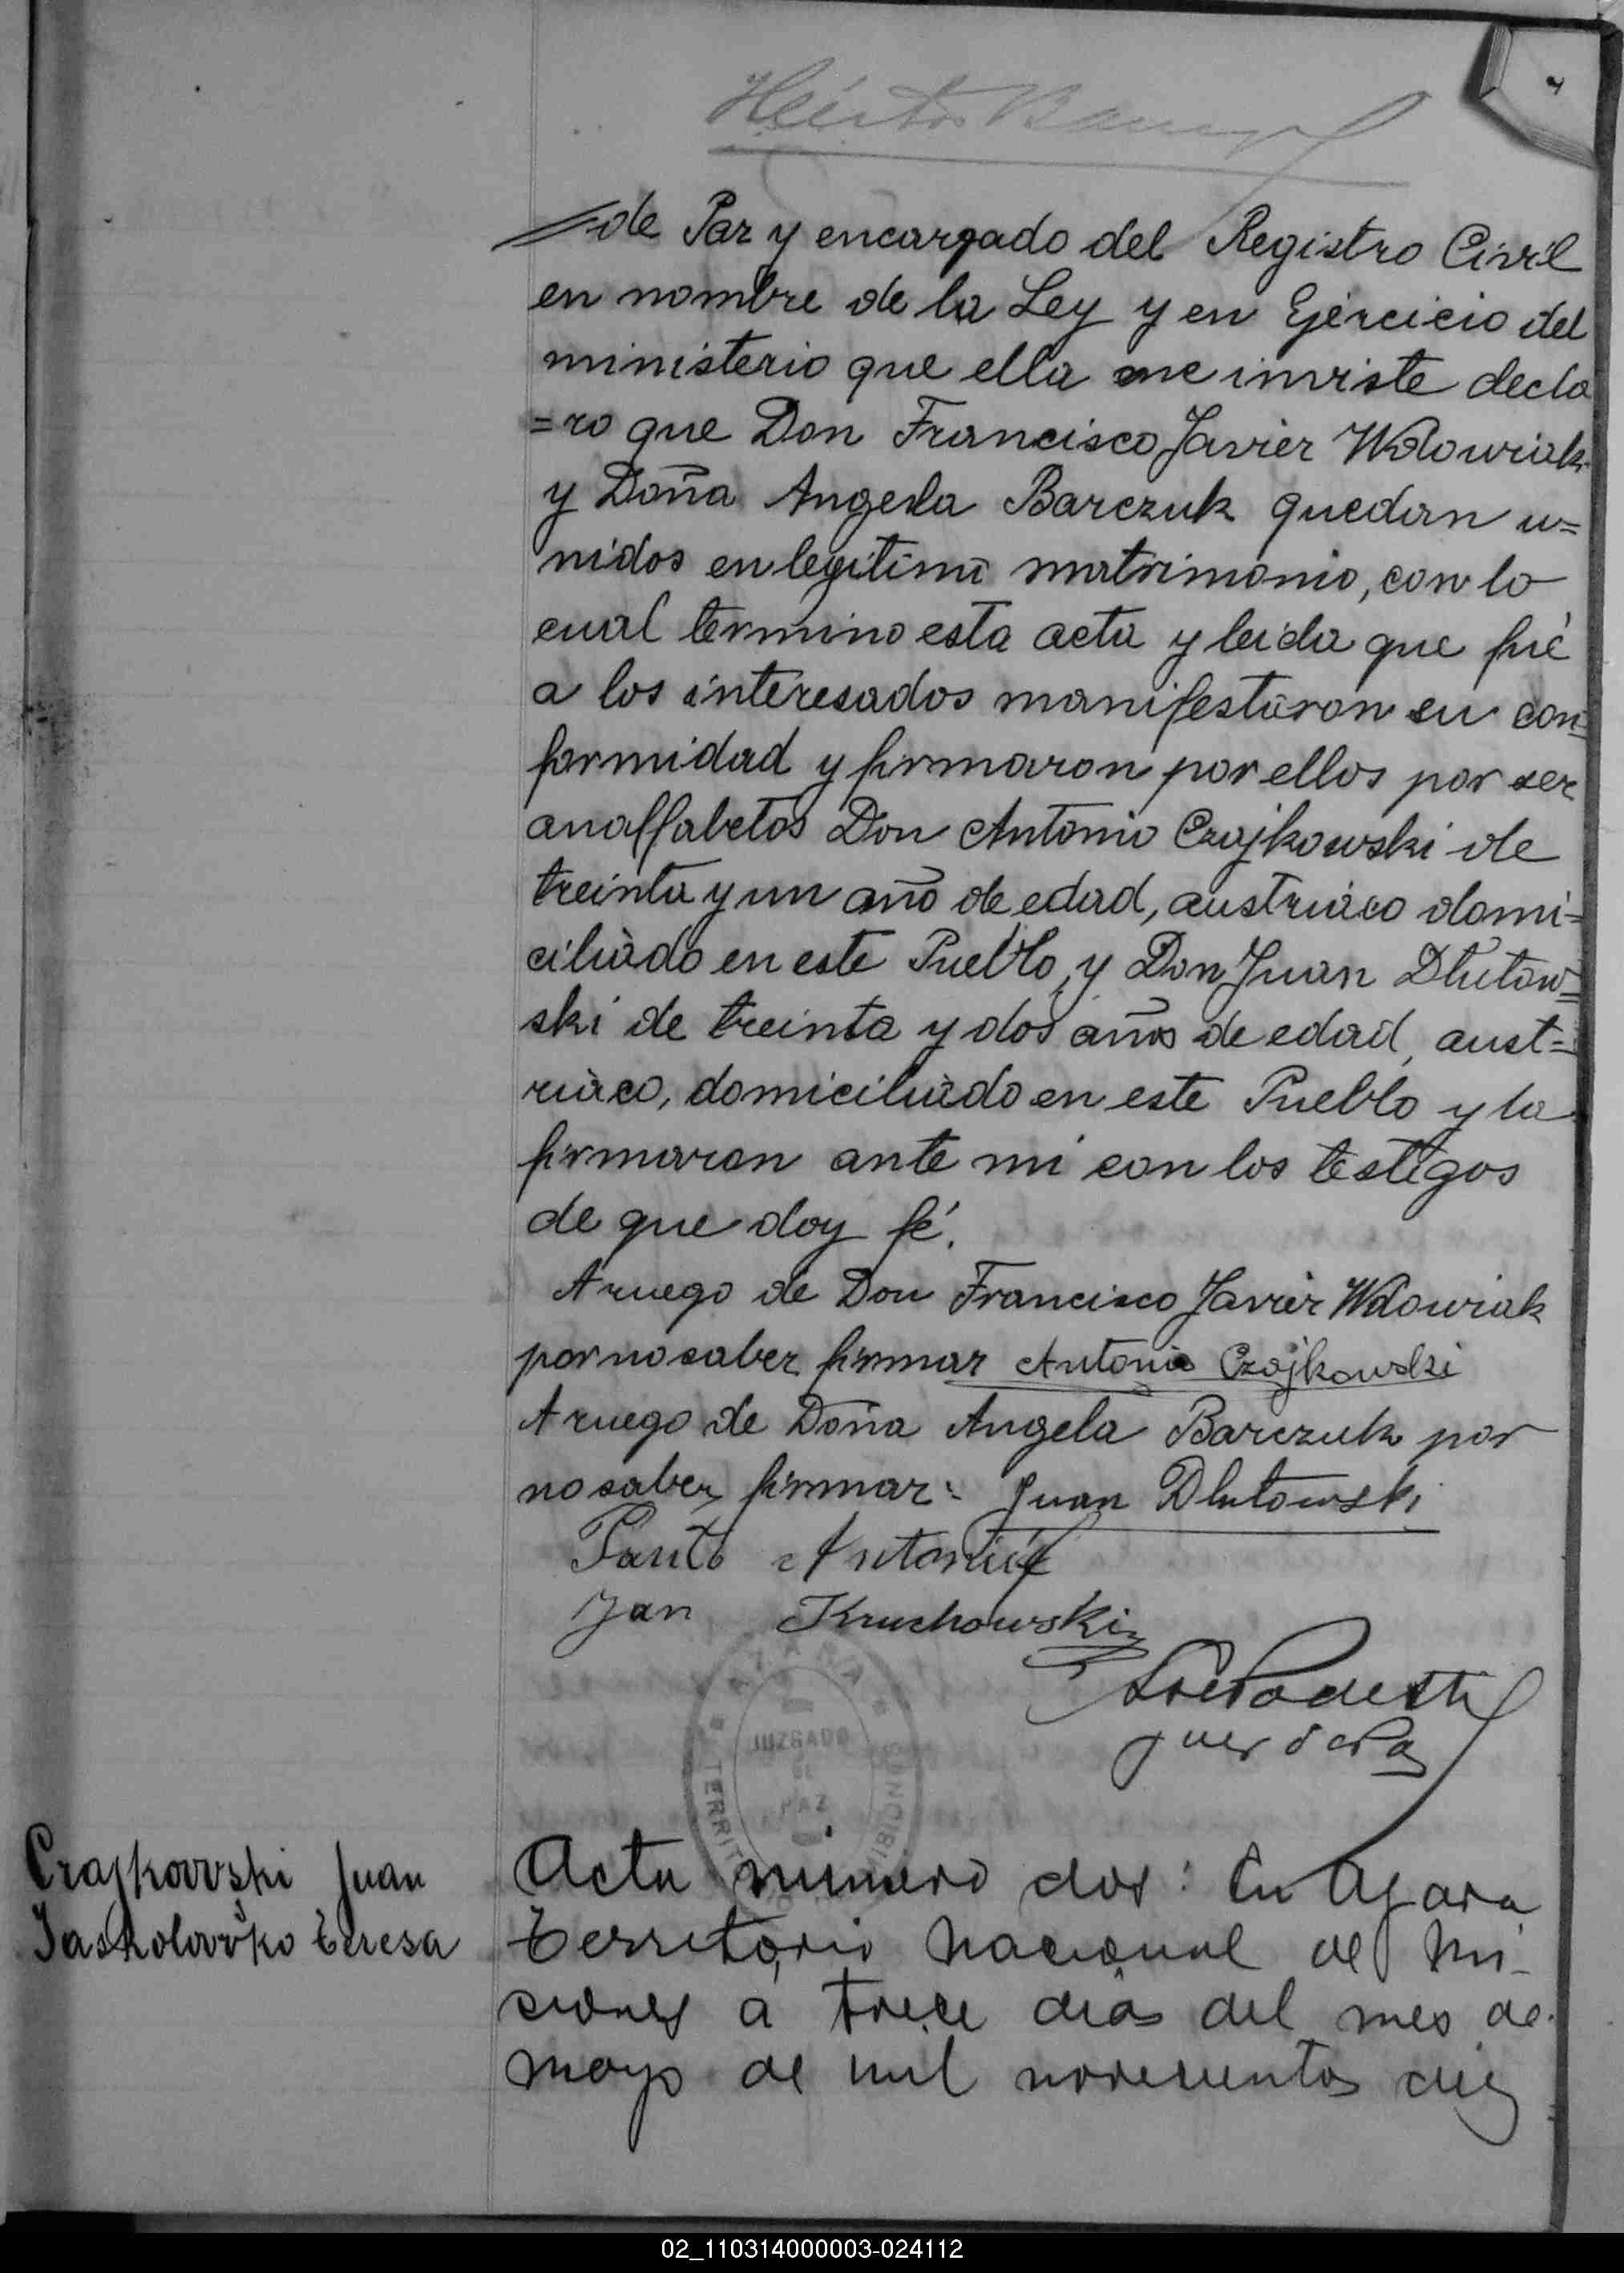 de Paz y encargado del Registro Civil
en nombre de la Ley y en Ejercicio del
ministerio que ella me inviste decla
=ro que Don Francisco Javier Wdowiak
y Doña Angela Barczuk quedan u=
nidos en legitimo matrimonio, con lo
cual termino esta acta y leida que fué
a los interesados manifestaron su con=
formidad y firmaron por ellos por ser
analfabetos Don Antonio Czajkowski de
treinta y un año de edad, austriaco domi=
ciliado en este Pueblo, y Don Juan Dlutow=
ski de treinta y dos años de edad, aust=
riaco, domiciliado en este Pueblo y la
firmaron ante mi con los testigos
de que doy fé.
A ruego de Don Francisco Javier Wdowiak
por no saber firmar Antonio Czajkowski
A ruego de Doña Angela Barczuk por
no saber firmar: Juan Dlutowski
Antonio
Jan Kruchowski
Juez de Paz
AZARA
JUZGADO
DE
PAZ
Czajkowski Juan
Jaskolovsko Teresa
Acta número dos: En Azara
Territorio Nacional de Mi-
siones á trece dias del mes de
mayo de mil novecientos diez
02_110314000003-024112